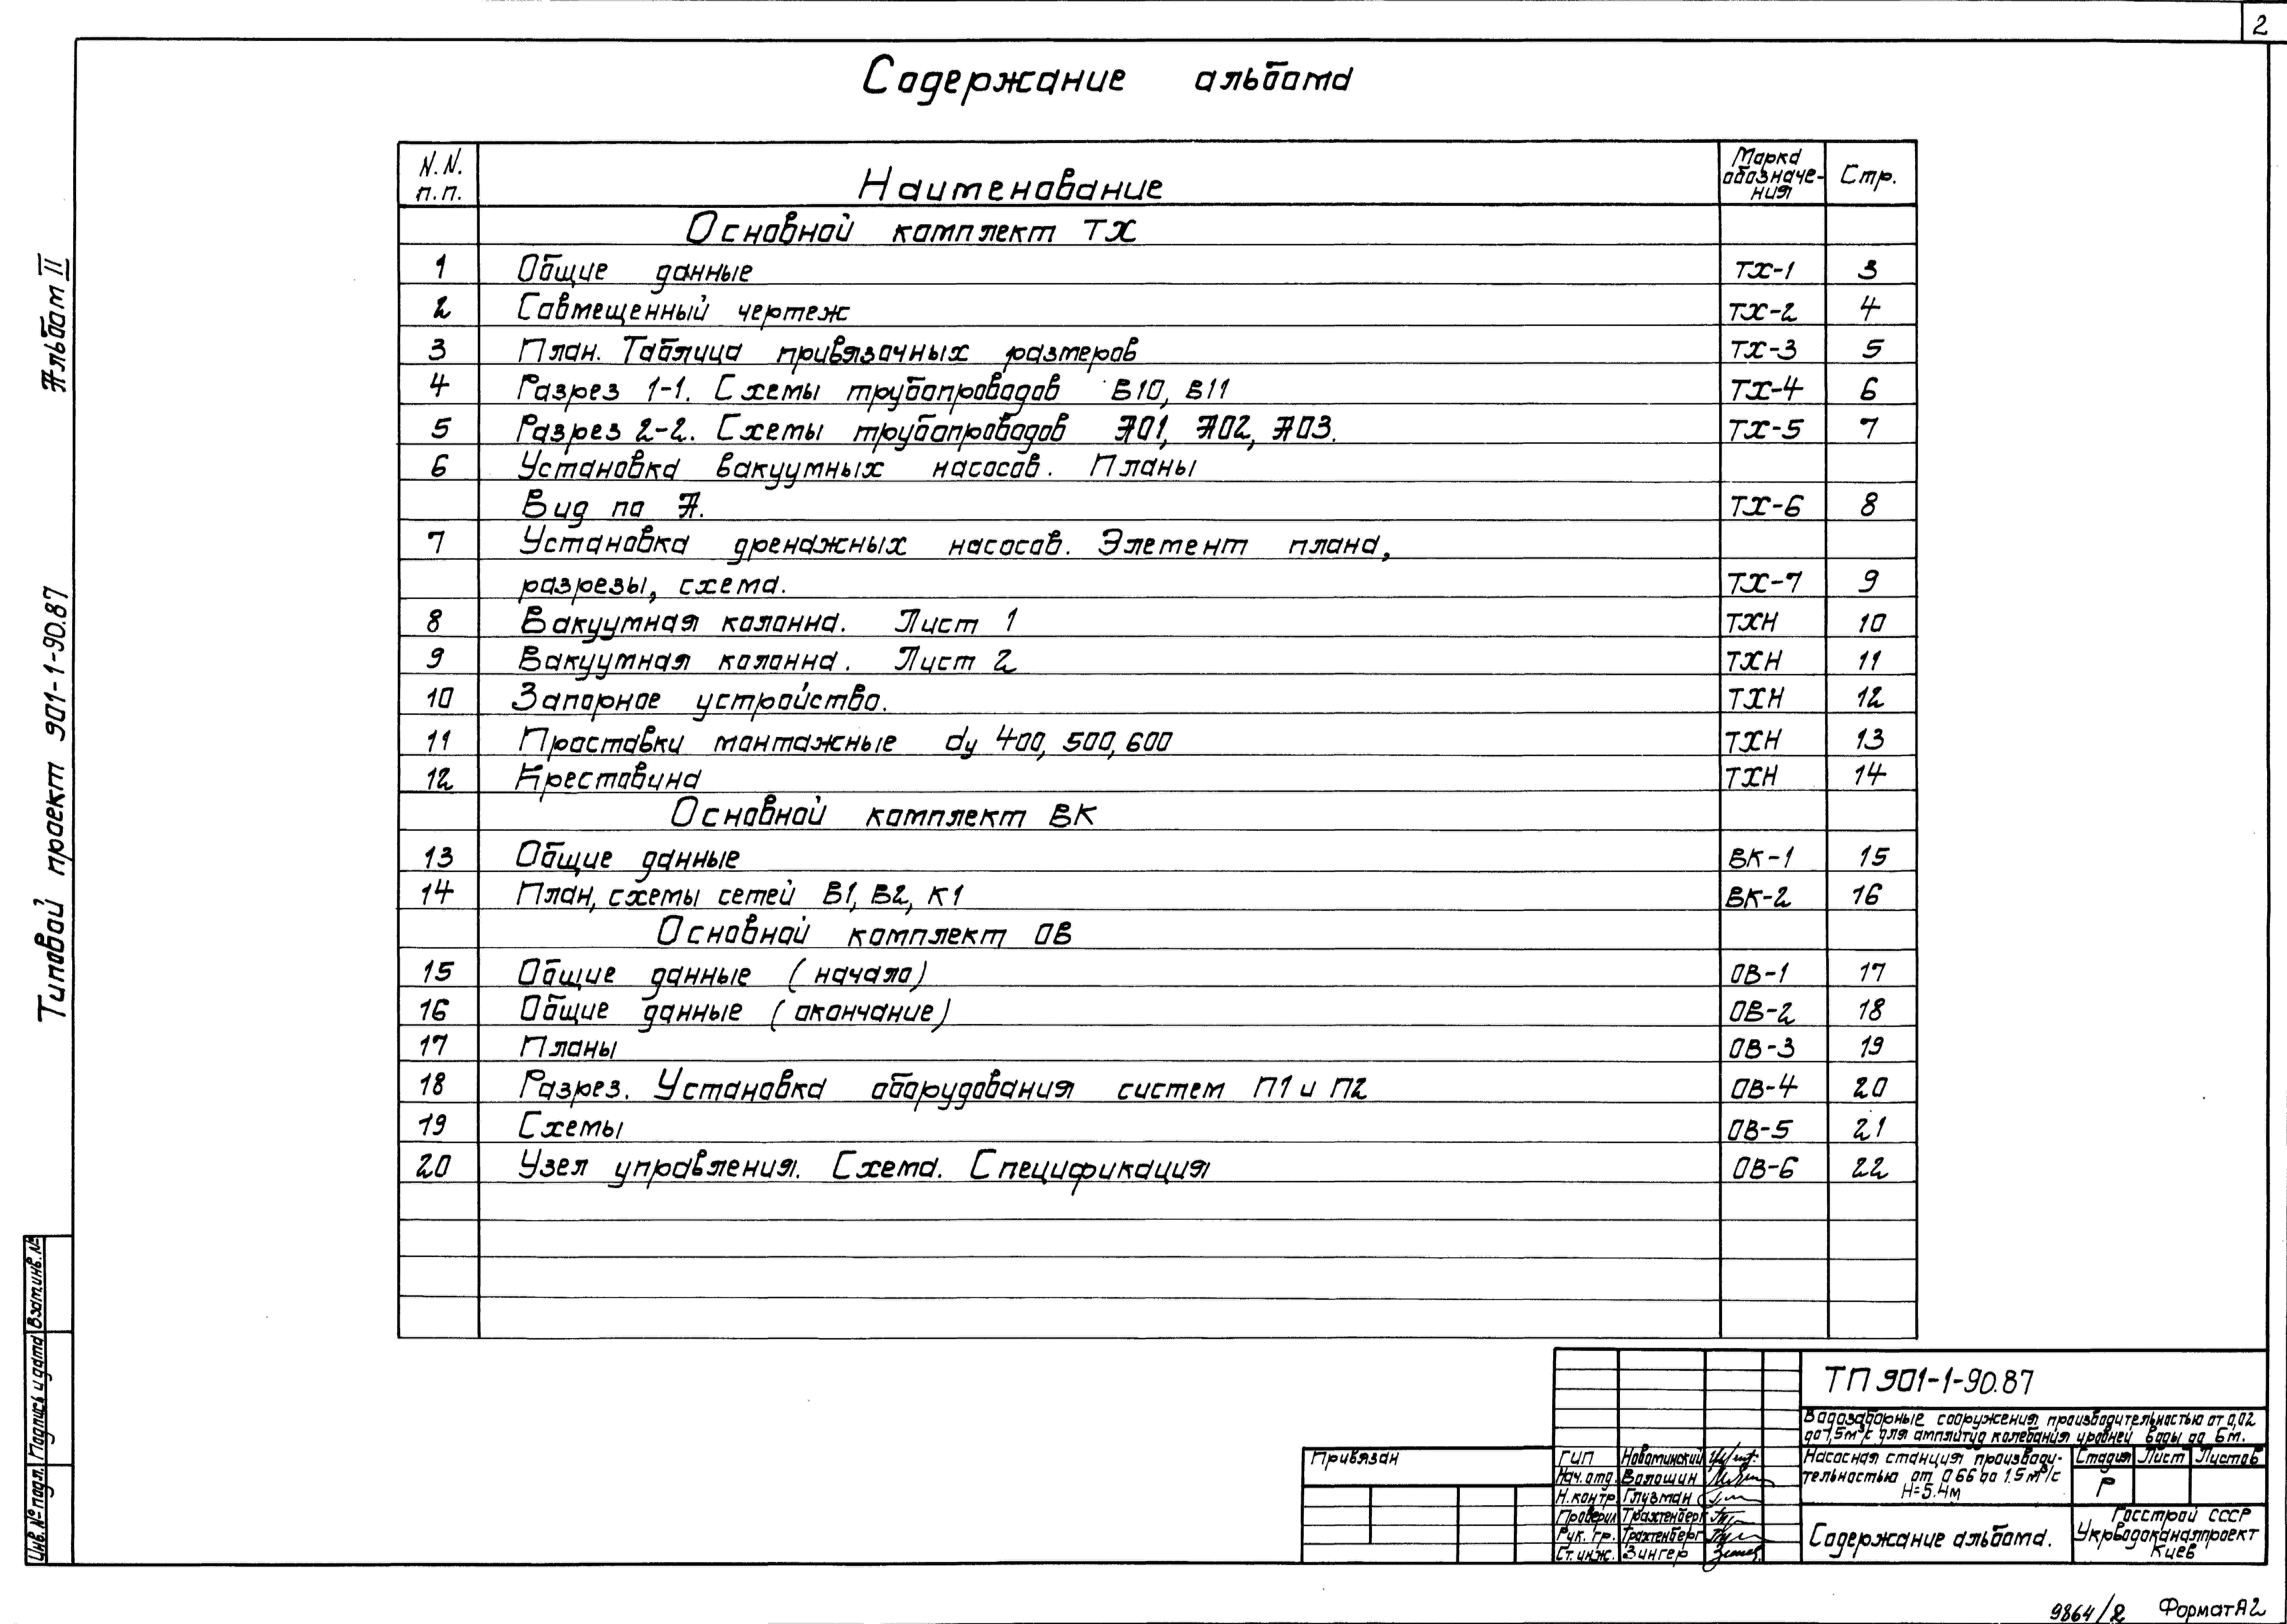 2
Содержание альбома
N.N. п.п. Наименование Марка обозначе-ния Стр.
Основной комплект ТХ
1 Общие данные ТХ-1 3
2 Совмещенный чертеж ТХ-2 4
3 План. Таблица привязочных размеров ТХ-3 5
4 Разрез 1-1. Схемы трубопроводов В10, В11 ТХ-4 6
5 Разрез 2-2. Схемы трубопроводов А01, А02, А03. ТХ-5 7
6 Установка вакуумных насосов. Планы
Вид по А. ТХ-6 8
7 Установка дренажных насосов. Элемент плана,
разрезы, схема. ТХ-7 9
8 Вакуумная колонна. Лист 1 ТХН 10
9 Вакуумная колонна. Лист 2 ТХН 11
10 Запорное устройство. ТХН 12
11 Проставки монтажные dу 400, 500, 600 ТХН 13
12 Крестовина ТХН 14
Основной комплект ВК
13 Общие данные ВК-1 15
14 План, схемы сетей В1, В2, К1 ВК-2 16
Основной комплект ОВ
15 Общие данные (начало) ОВ-1 17
16 Общие данные (окончание) ОВ-2 18
17 Планы ОВ-3 19
18 Разрез. Установка оборудования систем П1 и П2 ОВ-4 20
19 Схемы ОВ-5 21
20 Узел управления. Схема. Спецификация ОВ-6 22
Альбом II
Типовой проект 901-1-90.87
Взам.инв.№
Подпись и дата
Инв.№ подл.
Привязан
ГИП Новоминский
Нач.отд. Волошин
Н.контр. Глузман
Проверил Трахтенберг
Рук. гр. Трахтенберг
Ст.инж. Зингер
ТП 901-1-90.87
Водозаборные сооружения производительностью от 0,02
до 1,5м³/с для амплитуд колебания уровней воды до 6м.
Насосная станция производи-
тельностью от 0.66 до 1.5м³/с
Н=5.4м
Стадия Лист Листов
Р
Содержание альбома.
Госстрой СССР
Укрводоканалпроект
Киев
9864/2 Формат А2